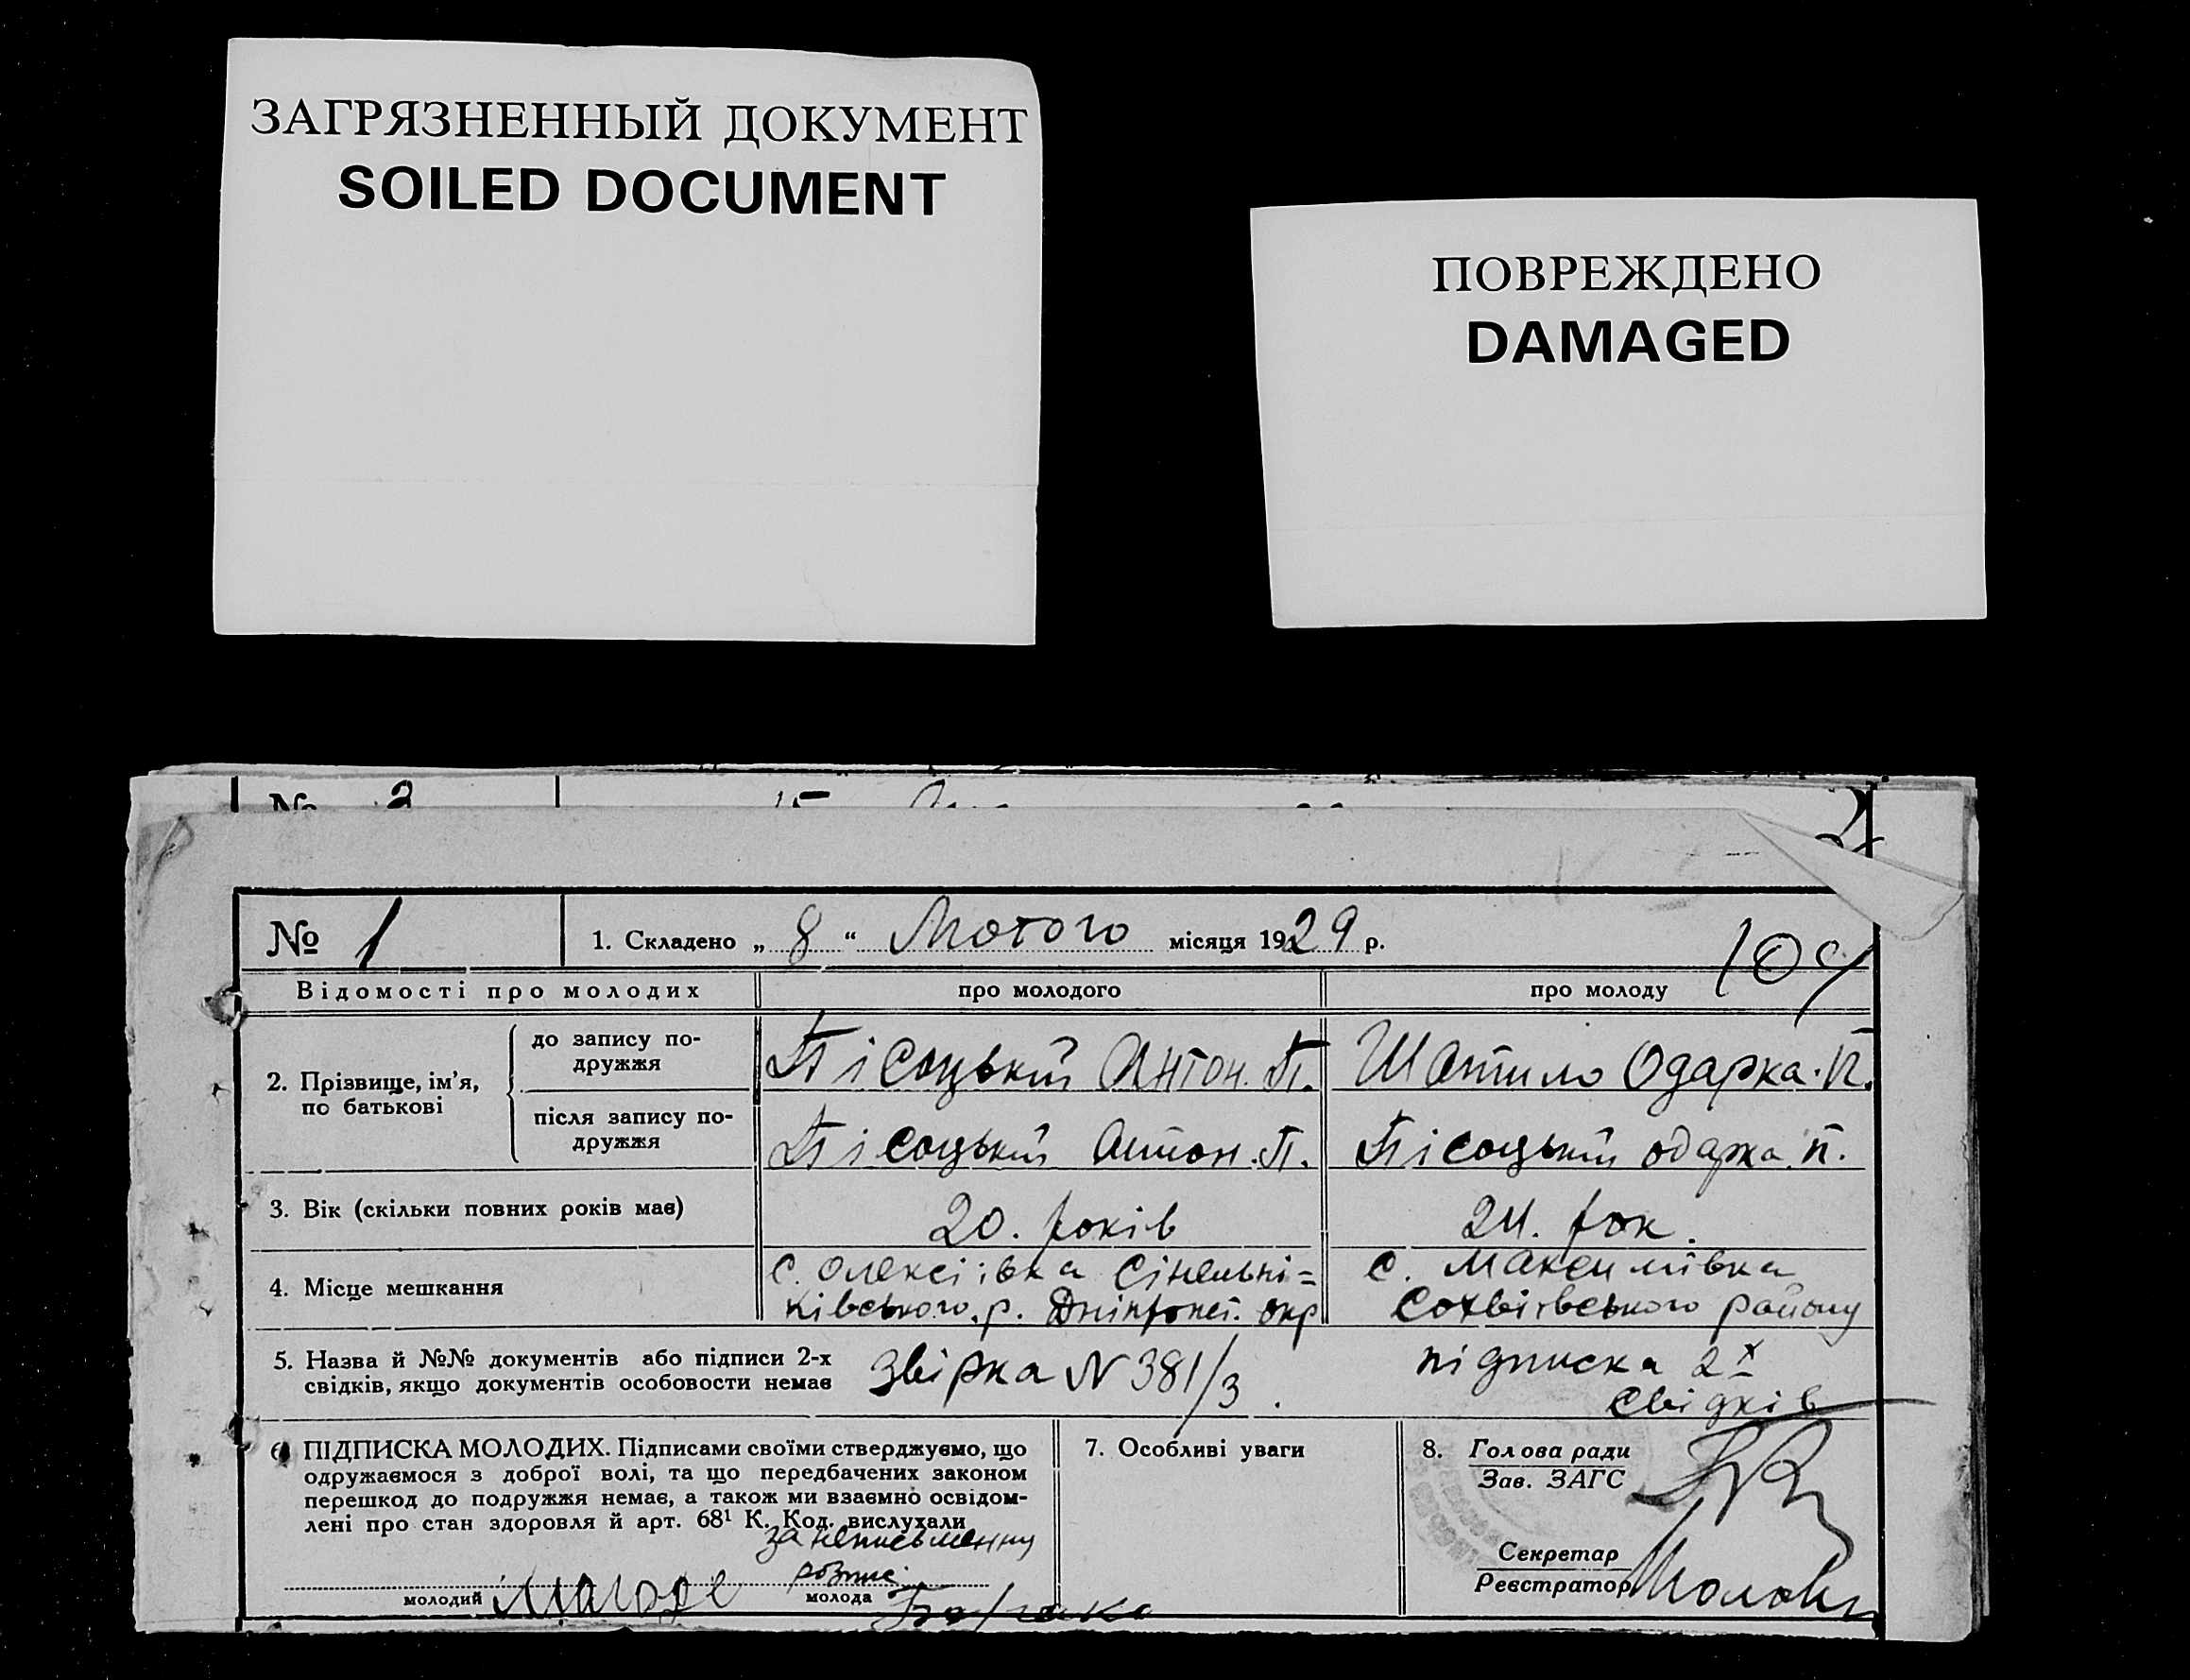 ЗАГРЯЗНЕННЫЙ ДОКУМЕНТ
SOILED DOCUMENT
ПОВРЕЖДЕНО
DAMAGED
№ 2
№ 1
1. Складено „ 8 “ Лютого місяця 1929 р.
109
Відомості про молодих
про молодого
про молоду
2. Прізвище, ім’я,
по батькові
до запису по-
дружжя
Пісоцький Антон. П.
Шатило Одарка. П.
після запису по-
дружжя
Пісоцький Антон. П.
Пісоцький Одарка. П.
3. Вік (скільки повних років має)
20. років
24. рок.
4. Місце мешкання
с. Олексіївка Сінельні=
ківського. р. Дніпропет. окр
с. Максимівка
району
5. Назва й №№ документів або підписи 2-х
свідків, якщо документів особовости немає
Звірка N 381/3.
підписка 2х
свідків
6. ПІДПИСКА МОЛОДИХ. Підписами своїми стверджуємо, що
одружаємося з доброї волі, та що передбачених законом
перешкод до подружжя немає, а також ми взаємно освідом-
лені про стан здоровля й арт. 68¹ К. Код. вислухали
за неписьменну
молодий
молода
7. Особливі уваги
8. Голова ради
Зав. ЗАГС
Секретар
Реєстратор